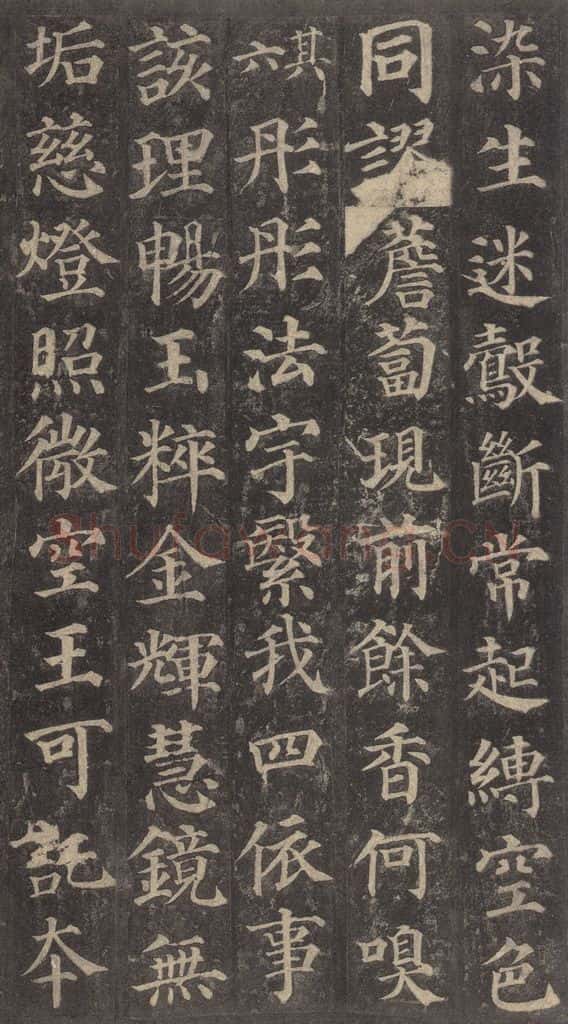 染生迷觳斷常起縛空色
同謬薝蔔現前餘香何嗅
其六彤彤法宇繄我四依事
該理暢玉粹金輝慧鏡無
垢慈燈照微空王可託本
shufawang.cn